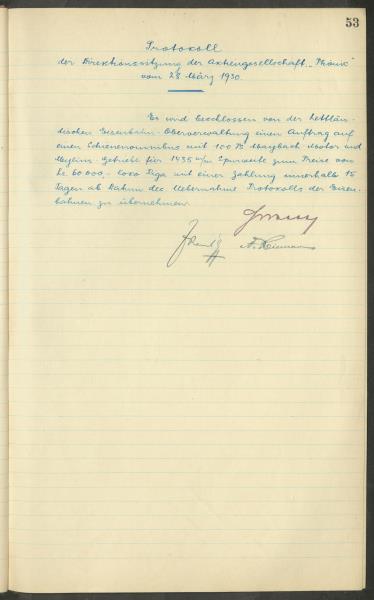 53
Protokoll
der Direktionssitzung der Aktiengesellschaft „Phönix"
vom 28 März 1930.
Es wird beschlossen von der lettlän-
dischen Eisenbahn-Oberverwaltung einen Auftrag auf
einen Schienenomnibus mit 100 PS Maybach Motor und
Mylius-Getriebe für 1435 m/m Spurweite zum Preise von
Ls. 60 000,- loco Riga mit einer Zahlung innerhalb 15
Tagen ab Datum des Uebernahme Protokolls der Eisen-
bahnen zu übernehmen.